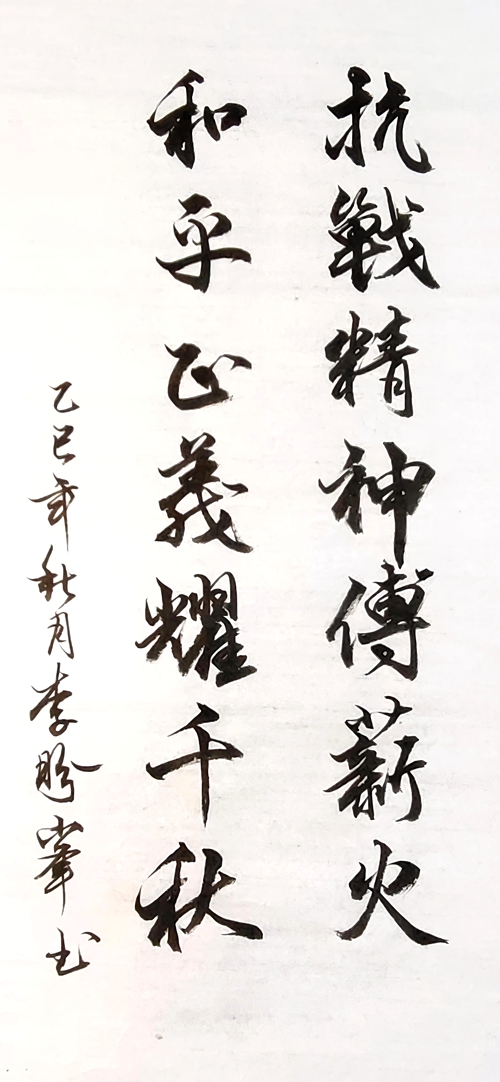 抗戰精神傳薪火
和平正義耀千秋
乙巳年秋月李盼峯书